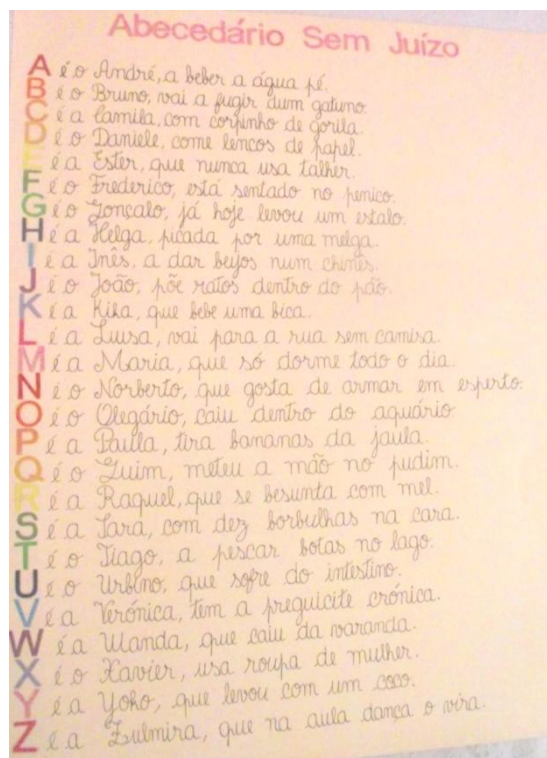 Abecedário Sem Juízo
A é o André, a beber a água pé.
B é o Bruno, vai a fugir dum gatuno.
C é a Camila, com corpinho de gorila.
D é o Daniele, come lencos de papel.
E é a Ester, que nunca usa talher.
F é o Frederico, está sentado no penico.
G é o Gonçalo, já hoje levou um estalo.
H é a Helga, picada por uma melga.
I é a Inês, a dar beijos num chinês.
J é o João, põe ratos dentro do pão.
K é a Kika, que bebe uma bica.
L é a Luisa, vai para a rua sem camisa.
M é a Maria, que só dorme todo o dia.
N é o Norberto, que gosta de armar em esperto.
O é o Olegário, caiu dentro do aquário.
P é a Paula, tira bananas da jaula.
Q é o Quim, meteu a mão no pudim.
R é a Raquel, que se besunta com mel.
S é a Sara, com dez borbulhas na cara.
T é o Tiago, a pescar botas no lago.
U é o Urbino, que sofre do intestino.
V é a Verónica, tem a preguicite crónica.
W é a Wanda, que caiu da varanda.
X é o Xavier, usa roupa de mulher.
Y é a Yoko, que levou com um coco.
Z é a Zulmira, que na aula dança o vira.